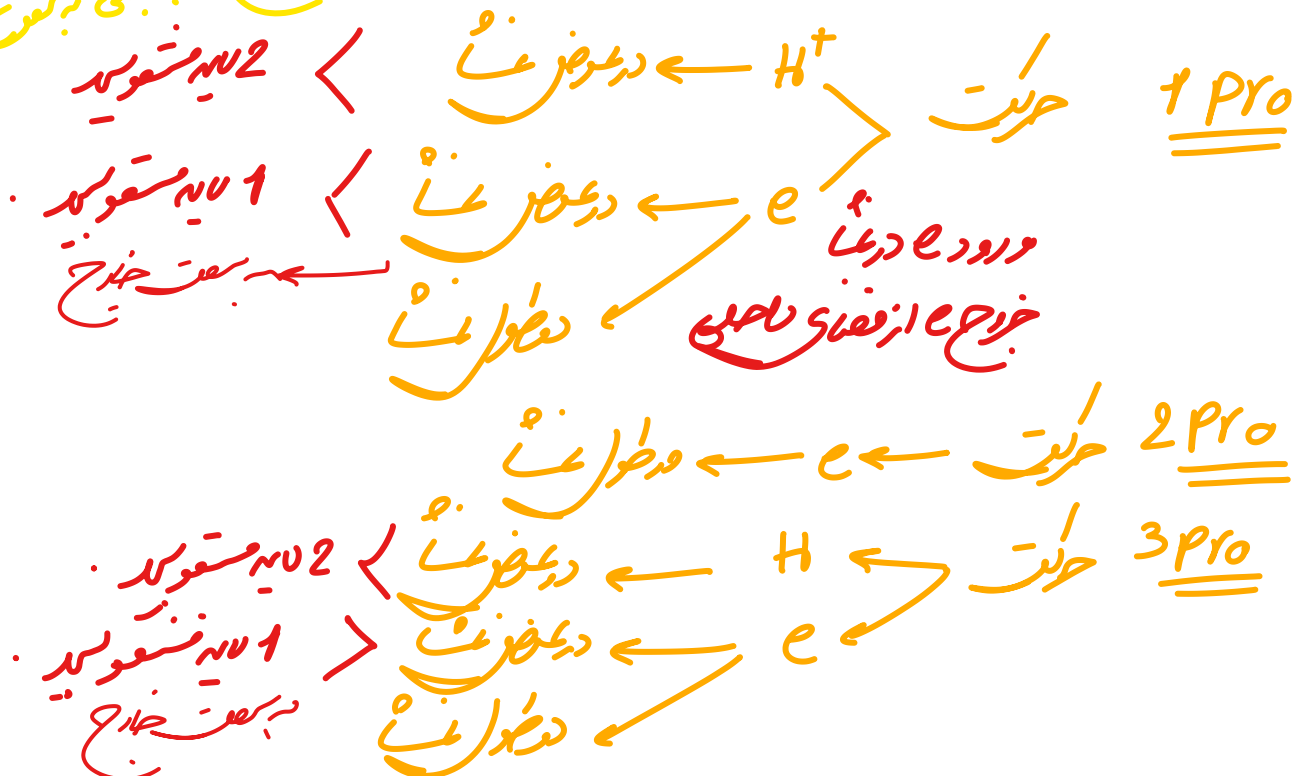 1 Pro حرکت H⁺ ← در عرض غشا < 2 لایه فسفولیپید
e ← در عرض غشا < 1 لایه فسفولیپید
ورود e در غشا
در طول غشا ← به سمت خارج
خروج e از فضای داخلی
2 Pro حرکت ← e ← در طول غشا
3 Pro حرکت H ← در عرض غشا < 2 لایه فسفولیپید
e ← در عرض غشا > 1 لایه فسفولیپید
در طول غشا به سمت خارج